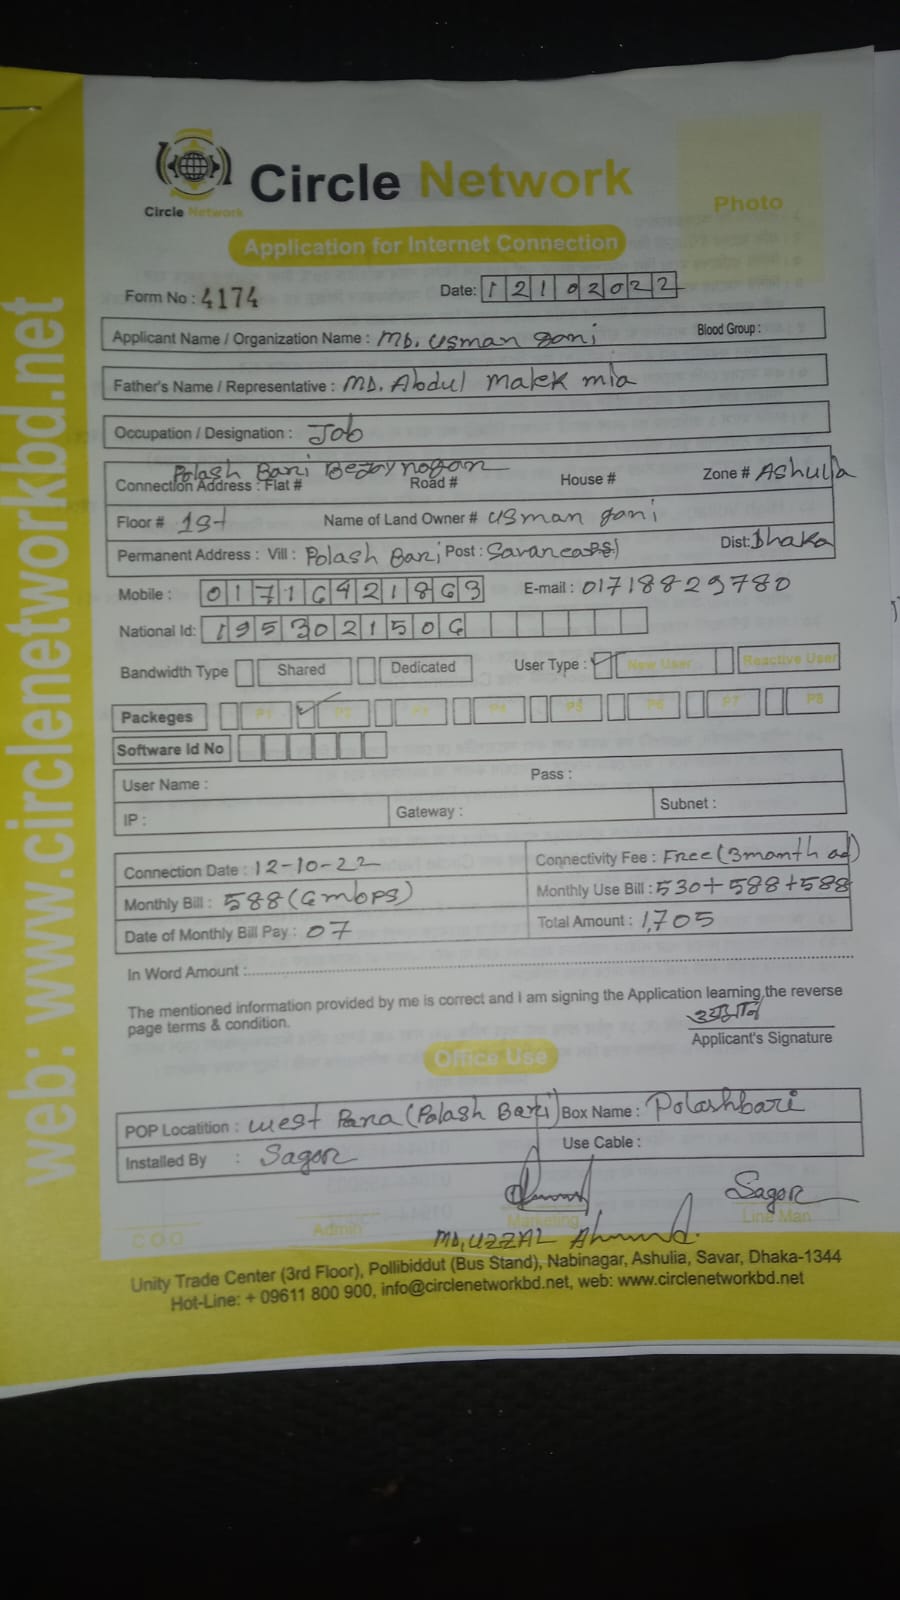 web: www.circlenetworkbd.net
Circle Network
Circle Network
Photo
Application for Internet Connection
Form No : 4174 Date: 12102022
Applicant Name / Organization Name : MD. Usman gani Blood Group :
Father's Name / Representative : MD. Abdul Malek mia
Occupation / Designation : Job
Polash Bari
Connection Address : Flat # Road # House # Zone # Ashulia
Floor # 1st Name of Land Owner # Usman gani
Permanent Address : Vill : Polash Bari Post : Dist: Dhaka
Mobile : 01716421863 E-mail : 01718829780
National Id: 1953021506
Bandwidth Type Shared Dedicated User Type : New User Reactive User
Packeges P1 P2 P3 P4 P5 P6 P7 P8
Software Id No
User Name : Pass :
IP : Gateway : Subnet :
Connection Date : 12-10-22 Connectivity Fee : Free (3month ad)
Monthly Bill : 588 (6mbps) Monthly Use Bill : 530+588+588
Date of Monthly Bill Pay : 07 Total Amount : 1,705
In Word Amount :
The mentioned information provided by me is correct and I am signing the Application learning the reverse
page terms & condition.
Applicant's Signature
Office Use
POP Locatition : West Para (Polash Bari) Box Name : Polashbari
Installed By : Sagor Use Cable :
Sagor
COO Admin Marketing Line Man
MD, UZZAL Ahmmd.
Unity Trade Center (3rd Floor), Pollibiddut (Bus Stand), Nabinagar, Ashulia, Savar, Dhaka-1344
Hot-Line: + 09611 800 900, info@circlenetworkbd.net, web: www.circlenetworkbd.net